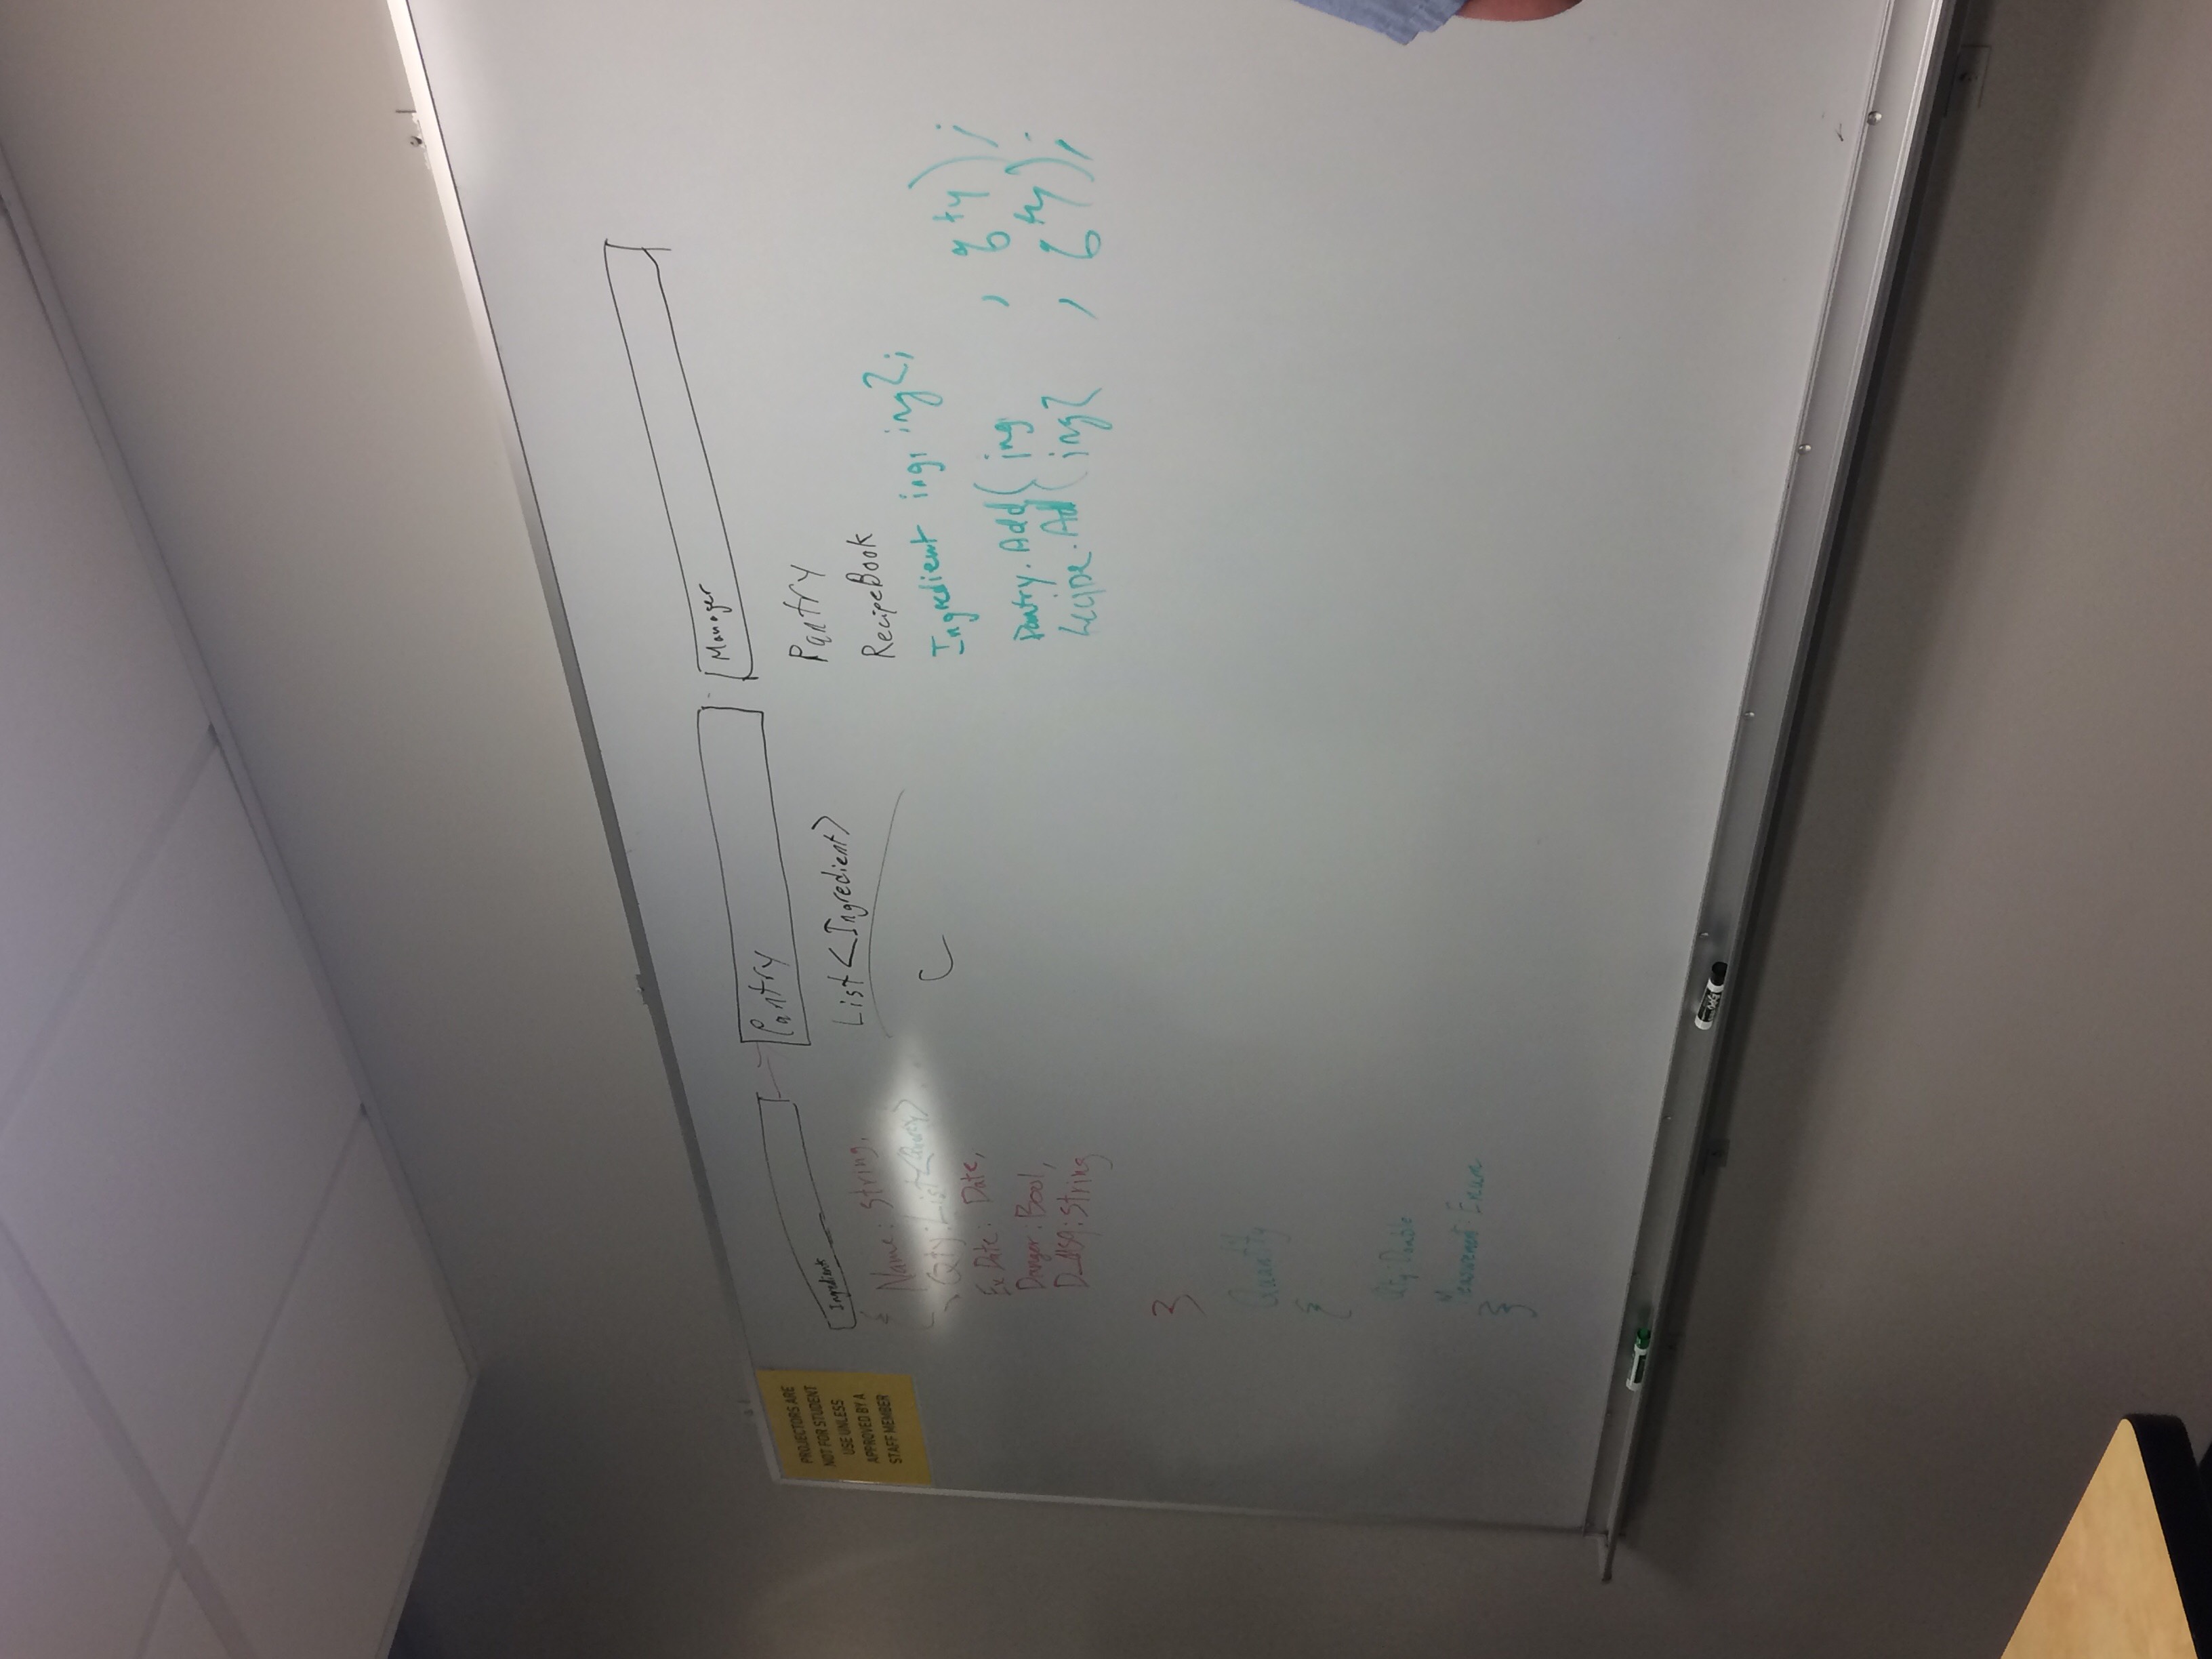 PROJECTORS ARE
NOT FOR STUDENT
USE UNLESS
APPROVED BY A
STAFF MEMBER
Ingredient
{
Name: String,
Qty: List<Quantity>
Ex Date: Date,
Danger: Bool,
D_Msg: String
}
Quantity
{
Qty: Double
Measurement: Enum
}
Pantry
List<Ingredient>
C
Manager
Pantry
RecipeBook
Ingredient ing, ing2;
Pantry.Add(ing , qty);
Recipe.Add(ing2 , qty);